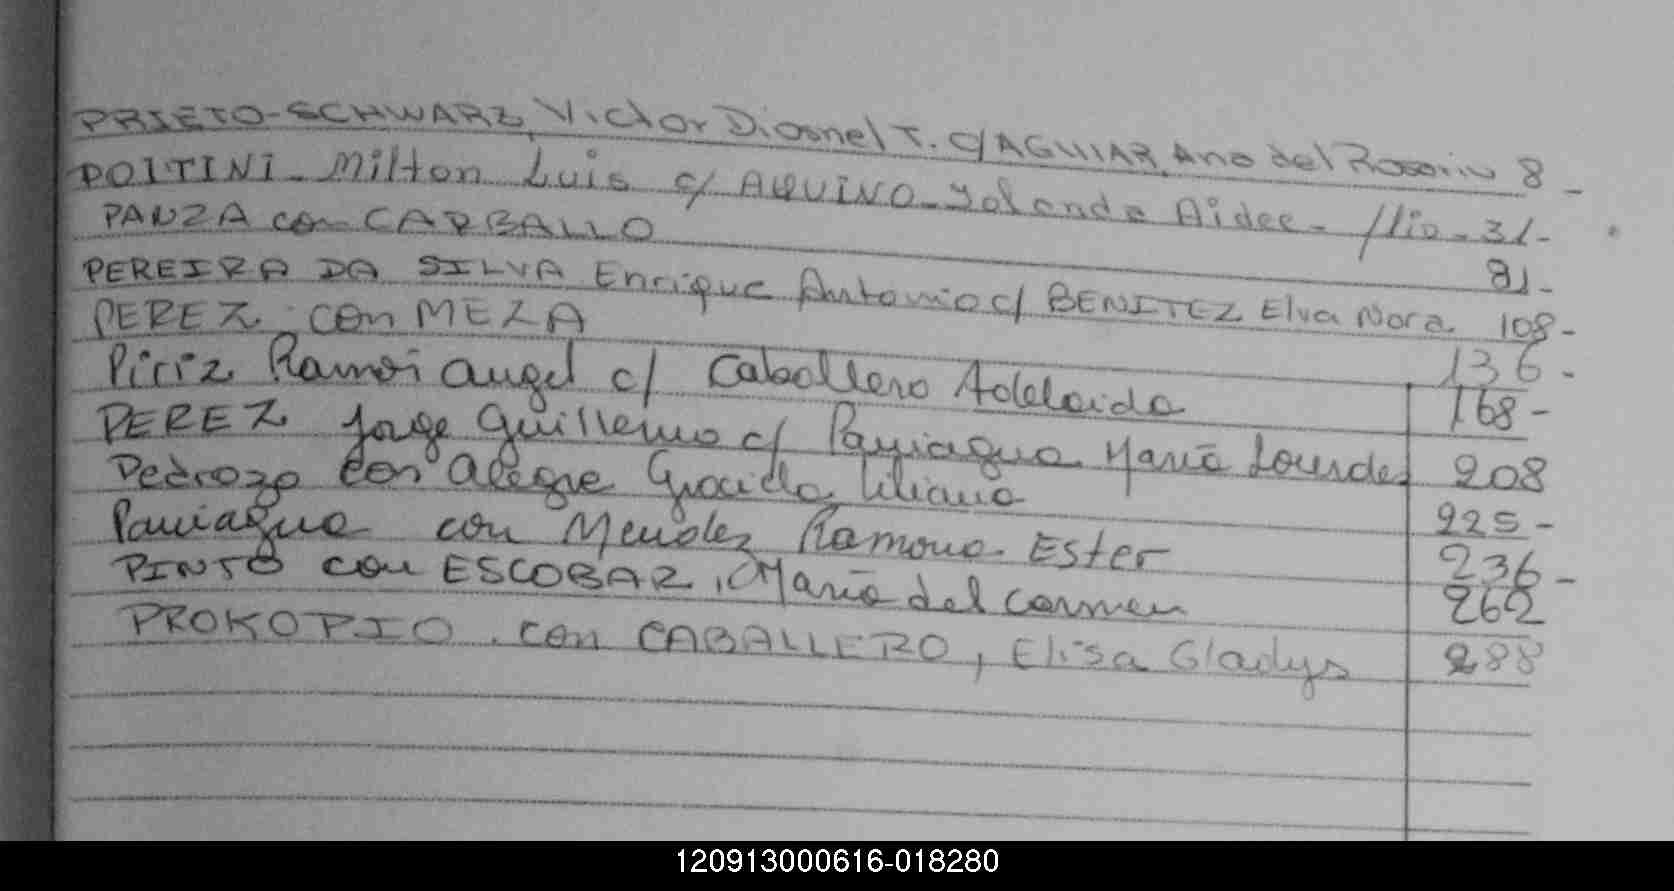 PRIETO-SCHWARZ, Victor Diosnel T. c/AGUIAR, Ana del Rosario 8-
POITINI - Milton Luis c/ AQUINO - Yolanda Aidee - 31-
PANZA con CARBALLO 81-
PEREIRA DA SILVA Enrique Antonio c/ BENITEZ Elva Nora 108-
PEREZ con MEZA 136-
Piriz Ramón Angel c/ Caballero Adelaida 168-
PEREZ Jorge Guillermo c/ Paniagua María Lourdes 208
Pedrozo con Alegre Graciela Liliana 225-
Paniagua con Mendez Ramona Ester 236-
PINTO con ESCOBAR, María del Carmen 262
PROKOPIO con CABALLERO, Elisa Gladys 288
120913000616-018280